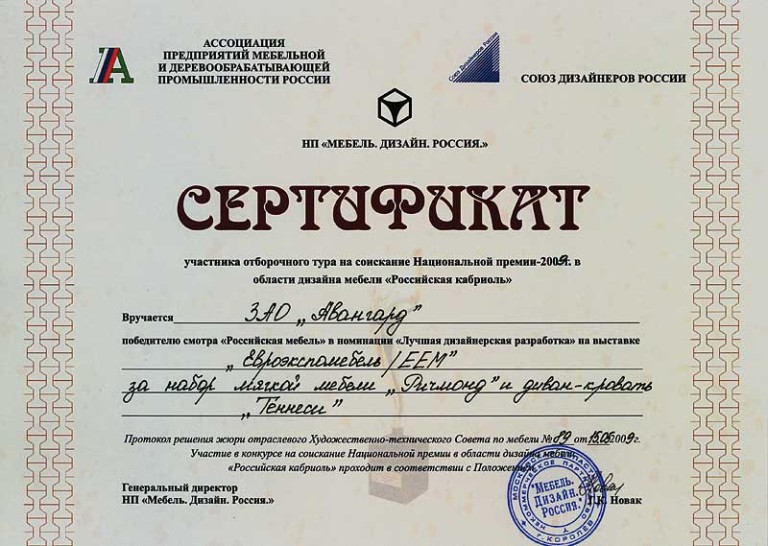 АССОЦИАЦИЯ
ПРЕДПРИЯТИЙ МЕБЕЛЬНОЙ
И ДЕРЕВООБРАБАТЫВАЮЩЕЙ
ПРОМЫШЛЕННОСТИ РОССИИ
Союз Дизайнеров России
СОЮЗ ДИЗАЙНЕРОВ РОССИИ
НП «МЕБЕЛЬ. ДИЗАЙН. РОССИЯ.»
СЕРТИФИКАТ
участника отборочного тура на соискание Национальной премии-2009г. в
области дизайна мебели «Российская кабриоль»
Вручается ЗАО „Авангард"
победителю смотра «Российская мебель» в номинации «Лучшая дизайнерская разработка» на выставке
„Евроэкспомебель/EEM"
за набор мягкой мебели „Ричмонд" и диван-кровать
„Теннеси"
Протокол решения жюри отраслевого Художественно-технического Совета по мебели №89 от 15.05.2009г.
Участие в конкурсе на соискание Национальной премии в области дизайна мебели
«Российская кабриоль» проходит в соответствии с Положением
Генеральный директор
НП «Мебель. Дизайн. Россия.»
"Мебель.
Дизайн.
Россия."
г. Королев
Г.К. Новак